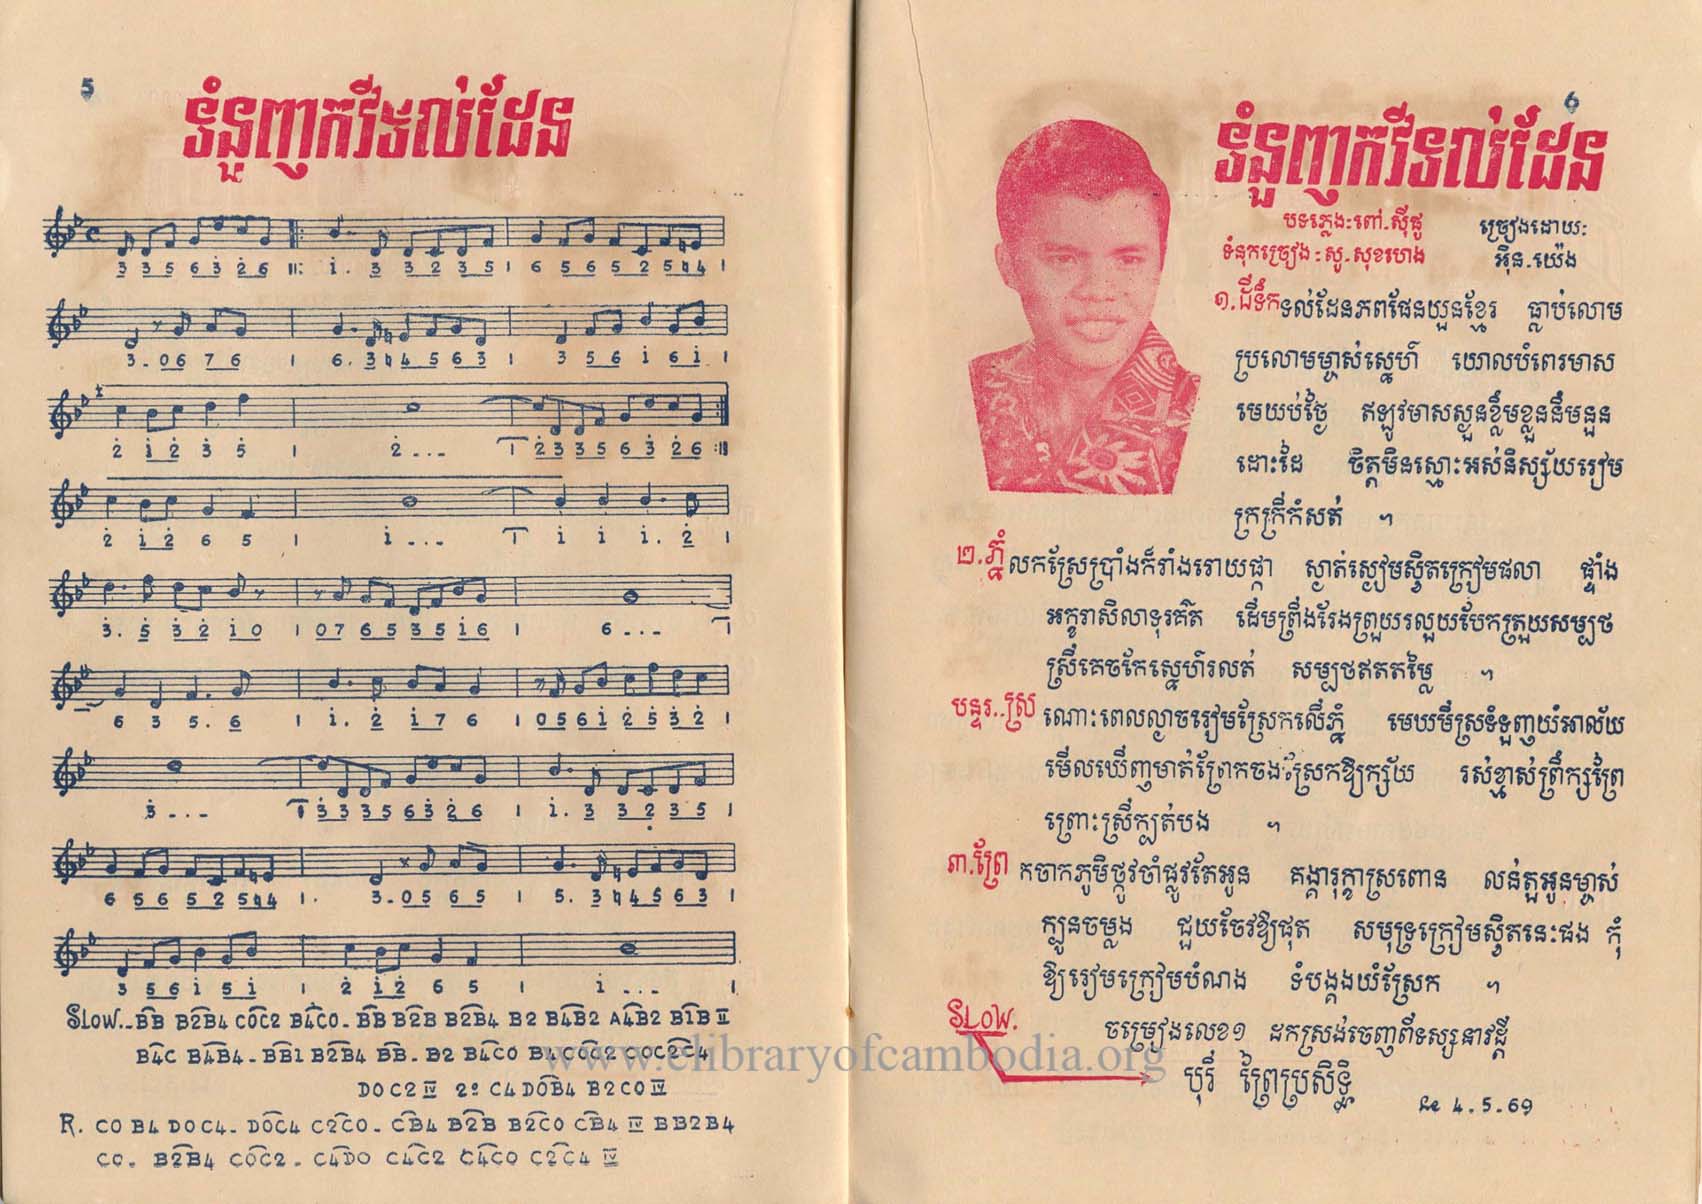 5
ទំនួញកវីទល់ដែន
3 3 5 6 3 2 6 ‖: i. 3 3 2 3 5 | 6 5 6 5 2 5 4 4 |
3. 0 6 7 6 | 6. 3 4 4 5 6 3 | 3 5 6 i 6 i |
2 i 2 3 5 | 2 . . . | 2 3 3 5 6 3 2 6 :‖
2 i 2 6 5 | i . . . | i i i. 2 |
3. 5 3 2 i 0 | 0 7 6 5 3 5 i 6 | 6 . . . |
6 3 5. 6 | i. 2 i 7 6 | 0 5 6 i 2 5 3 2 |
3 . . . | 3 3 3 5 6 3 2 6 | i. 3 3 2 3 5 |
6 5 6 5 2 5 4 4 | 3. 0 5 6 5 | 5. 3 4 4 5 6 3 |
3 5 6 i 5 i | 2 i 2 6 5 | i . . . |
SLOW.. BB B2B4 COC2 B4CO. BB B2B B2B4 B2 B4B2 A4B2 B1B II
B4C B4B4. BB1 B2B4 BB. B2 B4CO B4COC2 COC2C4
DOC2 IV 2: C4DOB4 B2CO IV
R. CO B4 DOC4. DOC4 C2CO. CB4 B2B B2CO CB4 IV BB2B4
CO. B2B4 COC2. C4DO C4C2 C4CO C2C4 IV
6
ទំនួញកវីទល់ដែន
បទភ្លេង:ពៅ.ស៊ីផូ ច្រៀងដោយ:
ទំនុកច្រៀង:សូ.សុខហេង អ៊ិន.យ៉េង
១.ដីទឹកទល់ដែនភពផែនយួនខ្មែរ ធ្លាប់លោម
ប្រលោមម្ចាស់ស្នេហ៍ យោលបំពេរមាស
មេយប់ថ្ងៃ ឥឡូវមាសស្ងួនខ្លឹមខ្លួននឹមនួន
ដោះដៃ ចិត្តមិនស្មោះអស់និស្ស័យរៀម
ក្រក្រីកំសត់ ។
២.ភ្នំ លកស្រែប្រាំងក៏រាំងរោយផ្កា ស្ងាត់ស្ងៀមស្វិតក្រៀមផលា ផ្ទាំង
អក្ខរាសិលាទុរគតិ ដើមព្រីងរែងព្រួយរលួយបែកត្រួយសម្បថ
ស្រីគេចកែស្នេហ៍រលត់ សម្បថឥតតម្លៃ ។
បន្ទរ..ស្រ ណោះពេលល្ងាចរៀមស្រែកលើភ្នំ មេឃមីស្រទំទួញយំអាល័យ
មើលឃើញមាត់ព្រែកចង់ស្រែកឱ្យក្ស័យ រស់ខ្មាស់ព្រឹក្សព្រៃ
ព្រោះស្រីក្បត់បង ។
៣.ព្រៃ កចាកភូមិថ្កូវចាំផ្លូវតែអូន គង្គារុក្ខាស្រពោន លន់តួអូនម្ចាស់
ក្បួនចម្លង ជួយចែវឱ្យផុត សមុទ្រក្រៀមស្វិតនេះផង កុំ
ឱ្យរៀមក្រៀមបំណង ទំបង្គងយំស្រែក ។
SLOW.
ចម្រៀងលេខ១ ដកស្រង់ចេញពីទស្សនាវដ្ដី
បុរី ព្រៃប្រសិទ្ធិ
4.5.69
www.elibraryofcambodia.org